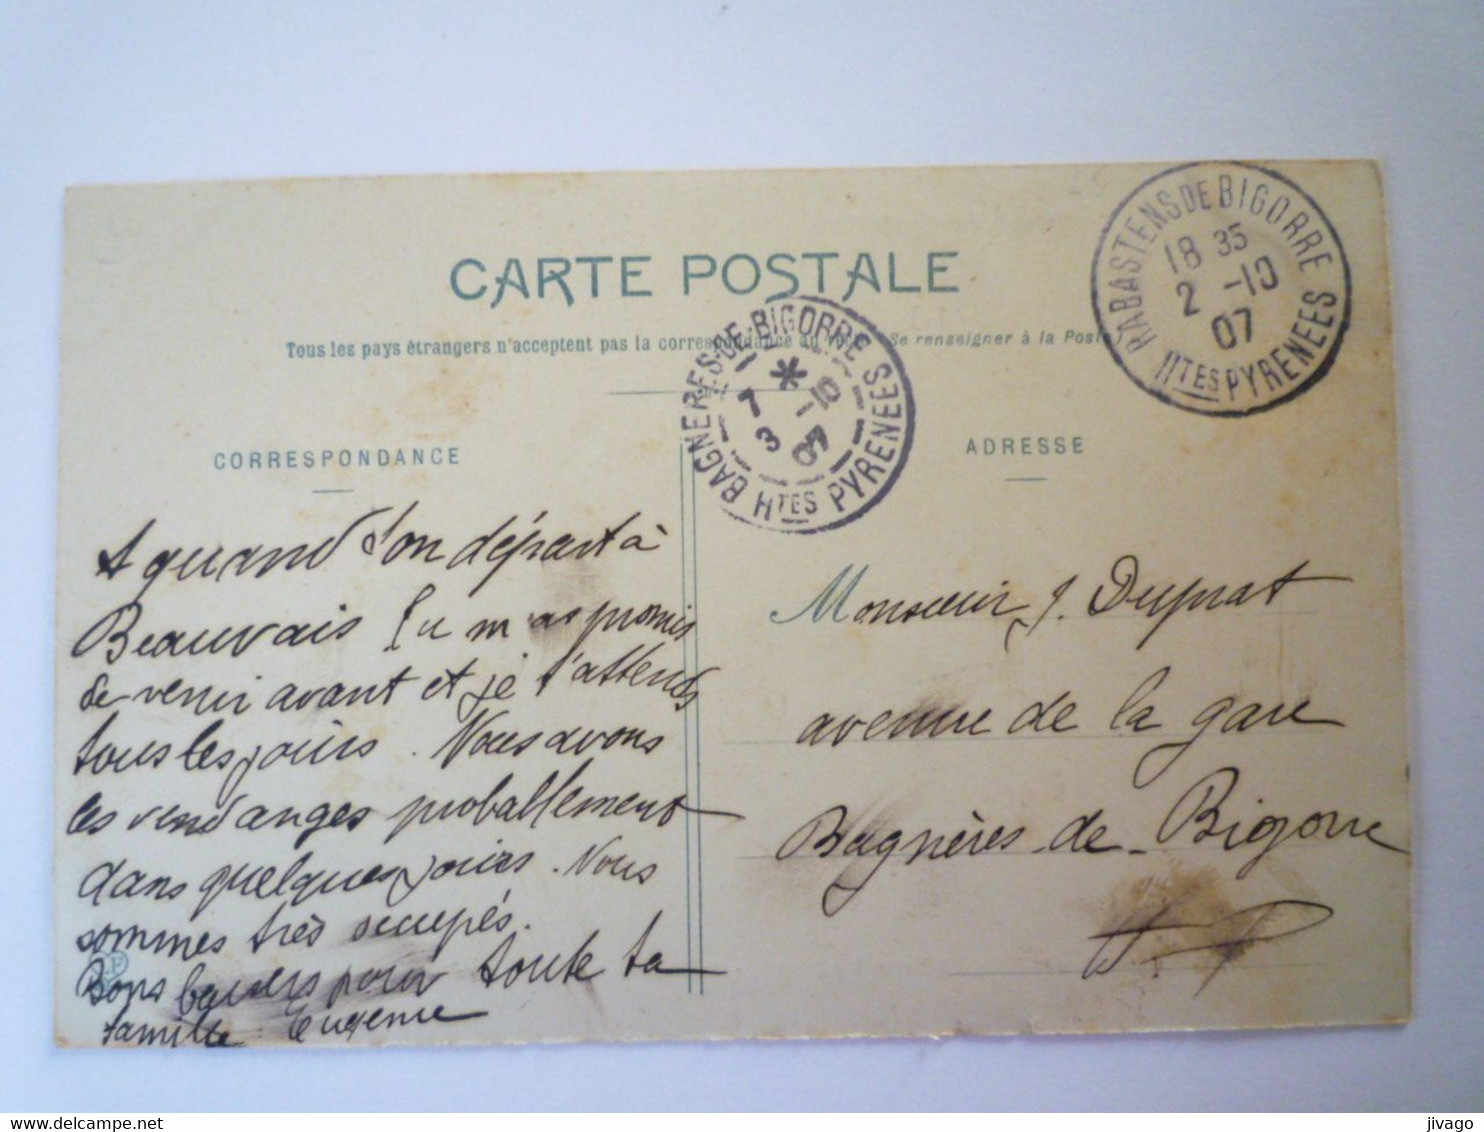 CARTE POSTALE
Tous les pays étrangers n'acceptent pas la correspondance au (Se renseigner à la Poste)
RABASTENS DE BIGORRE
18 35
2 -10
07
HTES PYRENEES
BAGNERES-DE-BIGORRE
*
7 -10
3 07
HTES PYRENEES
CORRESPONDANCE
A quand ton départ à
Beauvais Tu m'as promis
de venir avant et je t'attends
tous les jours. Nous avons
les vendanges proballement
dans quelques jours. Nous
sommes très occupés.
Bons baisers pour toute ta
famille Eugenie
ADRESSE
Monsieur J. Duprat
avenue de la gare
Bagnères-de-Bigorre
H P
jivago